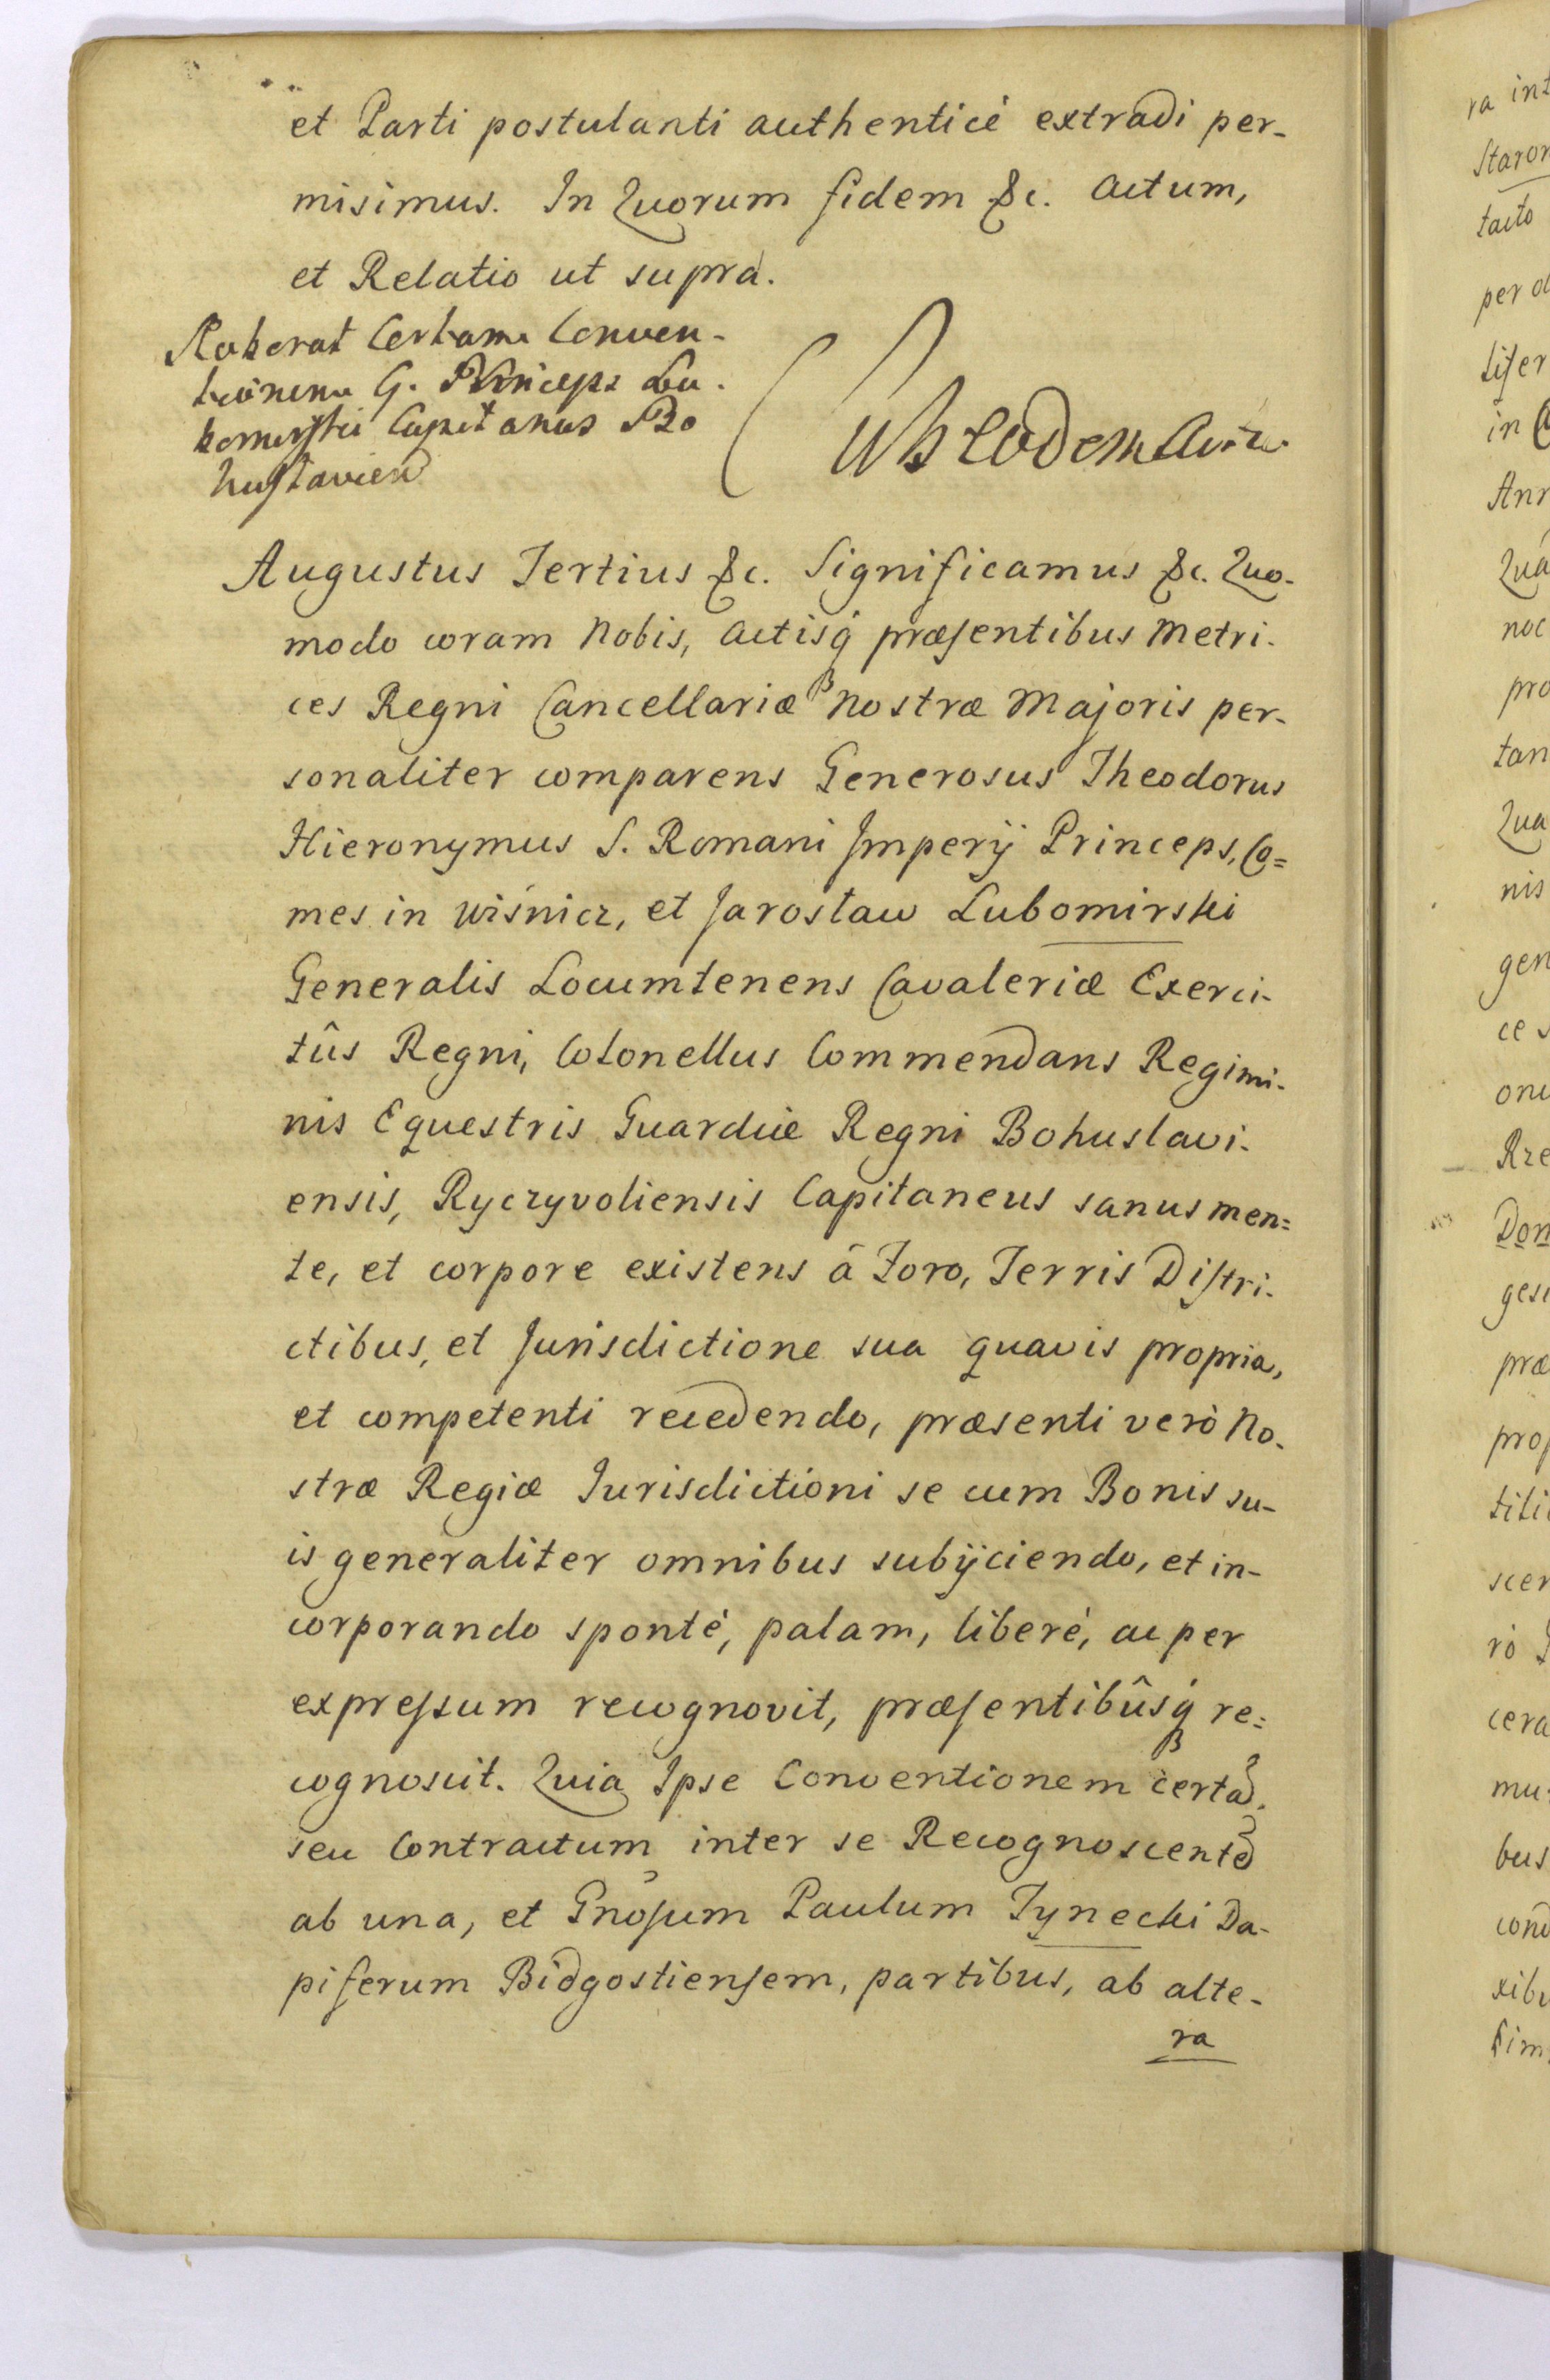 et Parti postulanti authenticè extradi per-
misimus. In Quorum fidem &c. Actum,
et Relatio ut supra.
Roborat Certam Conven-
tionem G. Princeps Lu-
bomirski Capitaneus Bo
huslavien
Augustus Tertius &c. Significamus &c. Quo-
modo coram Nobis, Actisq́ præsentibus Metri-
ces Regni Cancellariæ Nostræ Majoris per-
sonaliter comparens Generosus Theodorus
Hieronymus S. Romani Imperij Princeps, Co=
mes in Wiśnicz, et Jarosław Lubomirski
Generalis Locumtenens Cavaleriæ Exerci-
tûs Regni, Colonellus Commendans Regimi-
nis Equestris Guardiæ Regni Bohuslavi-
ensis, Ryczyvoliensis Capitaneus sanus men=
te, et corpore existens â Foro, Terris Distri-
ctibus, et Jurisdictione sua quavis propria,
et competenti recedendo, præsenti verò No-
stræ Regiæ Jurisdictioni se cum Bonis su-
is generaliter omnibus subijciendo, et in-
corporando sponté, palam, liberé, ac per
expressum recognovit, præsentibûsq́ re=
cognoscit. Quia Ipse Conventionem certã,
seu Contractum inter se Recognoscentẽ
ab una, et Gnosum Paulum Tynecki Da-
piferum Bidgostiensem, partibus, ab alte-
ra
ra int
Staron
tacto
per
in
Quá
noc
pro
tan
Qua
nis
gen
ce
Rze
Don
gesi
præ
prop
titi
scen
rò
cera
mu
bus
cond